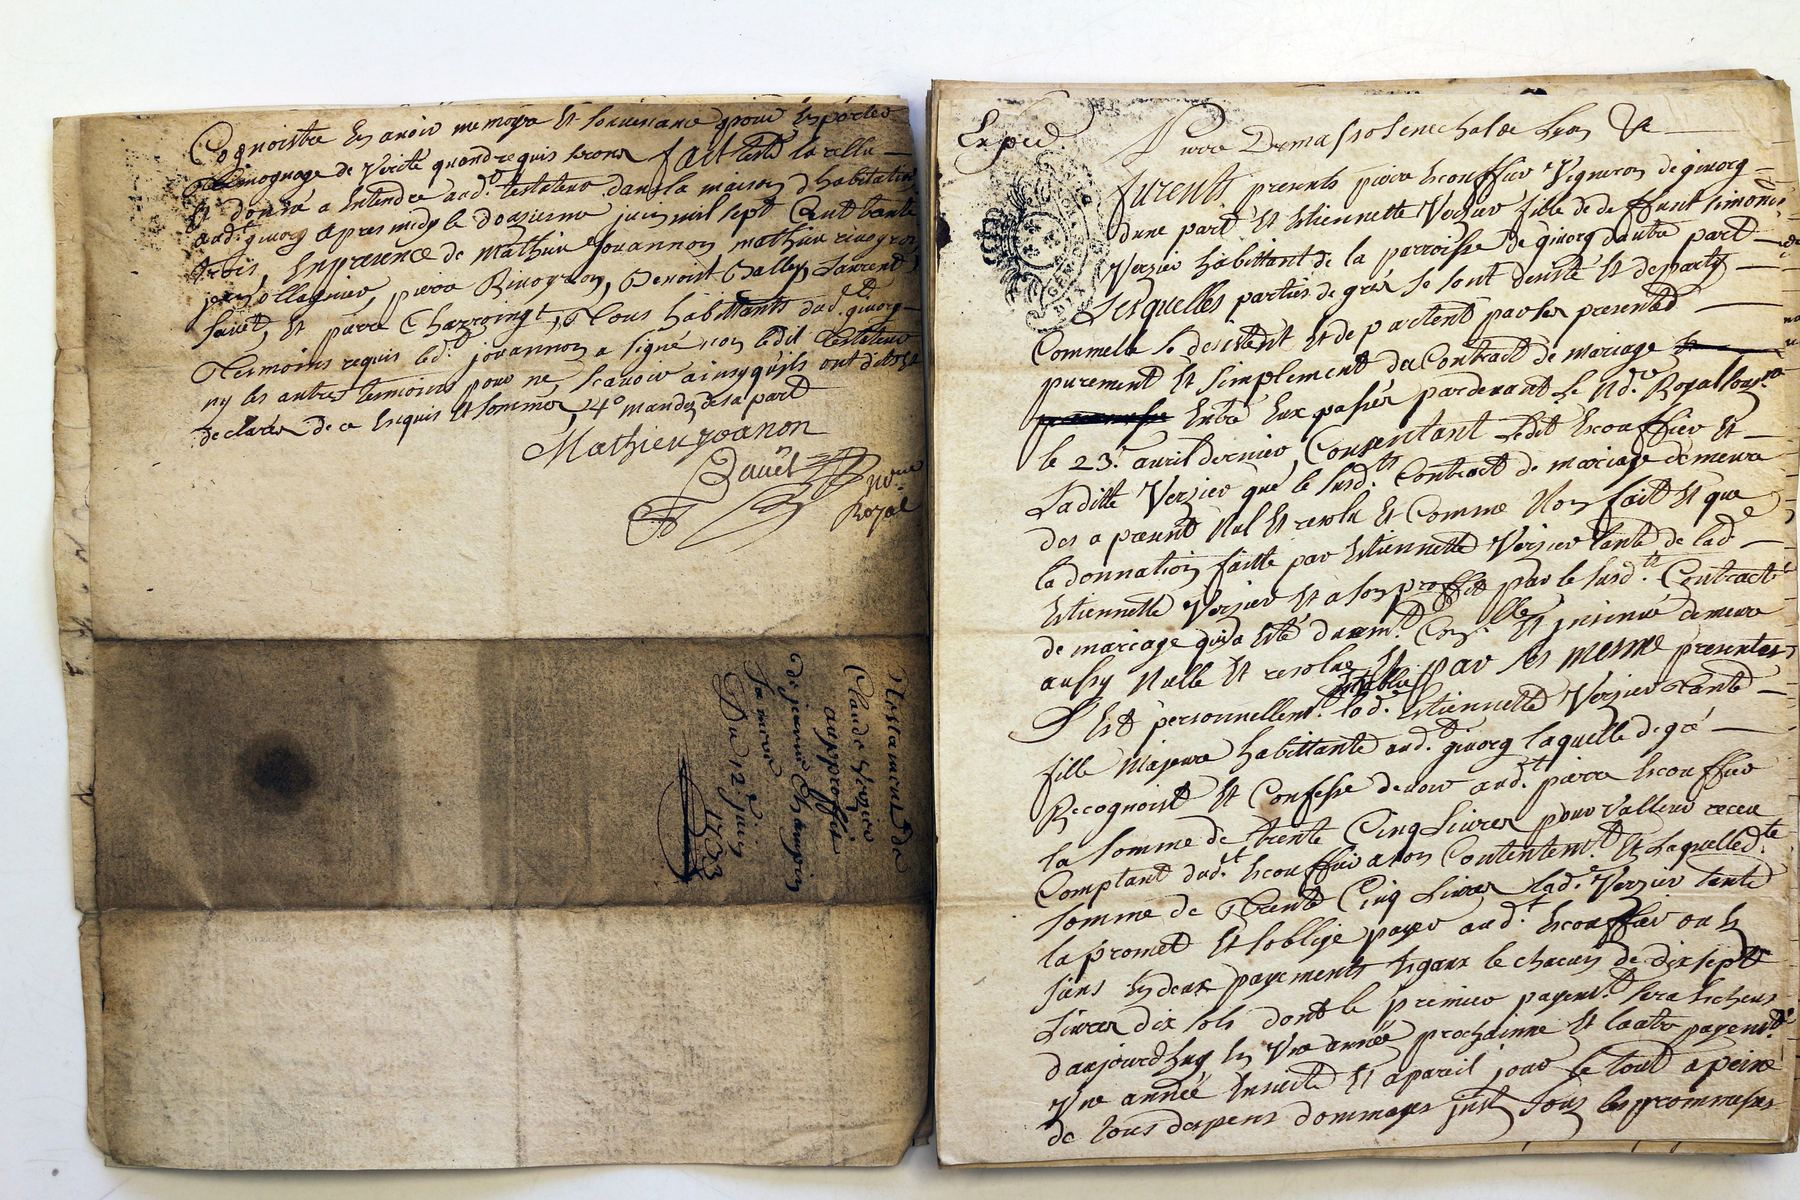 Cognoistre En avoir memoyre Et souvenance pour En porter
Tesmoignage de Verité quand requis seront fait leté la rellu
Et donné a Entendre aud.t testateur dans la maison d'habitation
aud.t givorg apres midy le douzieme juin mil sept Cent trante
trois, En presence de Mathieu Jouannon mathieu
jean ollagnier, piere Rivoyron, Benoist Balley Laurent
favet, Et piere Charroingt, Tous habittants dud.t givorg
Tesmoins requis led.t jouannon a signé non ledit Testateur
ny les autres tesmoins pour ne scavoir ainsy qu'ils ont dit Et
declarés de ce Enquis Et sommés, 4o mandes de sa part
Mathieu joanon
Bauët no.re
Royal
Testament de
Claude Verzier
au proffit
de jeanne
sa mere
Du 12e juin
1733
Expéd.
furents presents piere Escouffier Vigneron de givorg
dune part Et Estiennette Verzier fille de deffunt simon
Verzier habittant de la parroisse de givorg dautre part
Lesquelles parties de grés se sont desisté Et departy
Comme Ils se desistent Et departent par ses presentes
purement Et simplement du Contract de mariage
Entre Eux passés pardevant Le No.re Royal sous.né
le 23e avril dernier, Consentant Ledit Escouffier Et
Laditte Verzier que le susd.t Contract de mariage demeure
des a present Nul Et resolu Et Comme Non fait Et que
la donnation faitte par Estiennette Verzier tante de lad.e
Estiennette Verzier Et a son proffit par le susd.t Contract
de mariage qui a Esté duem.t Con.llé Et insinué demeure
aussy Nulle Et resolue Et par ses mesme presentes
S'Est personnellem.t Establie lad.e Estiennette Verzier tante
fille Majeure habittante aud.t givorg laquelle de gré
Recognoist Et Confesse devoir aud.t piere Escouffier
la somme de trente Cinq Livres pour Valleur receu
Comptant dud.t Escouffier a son Contentem.t Et Laquelle d.te
somme de Trente Cinq Livres lad.e Verzier tante
la promet Et soblige payer aud.t Escouffier ou Es
siens En deux payements Egaux le chacun de dix sept
Livres dix sols dont le premier payem.t sera Echeus
daujourdhuy En Une année prochainne Et lautre payem.t
Une année Ensuitte Et apareil jour Le tout a peine
de tous despens dommages just sous les prommesses